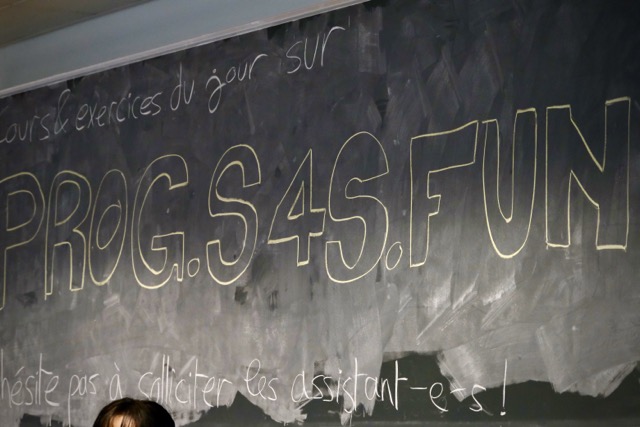 cours & exercices du jour sur
PROG.S4S.FUN
hésite pas à solliciter les assistant-e-s !